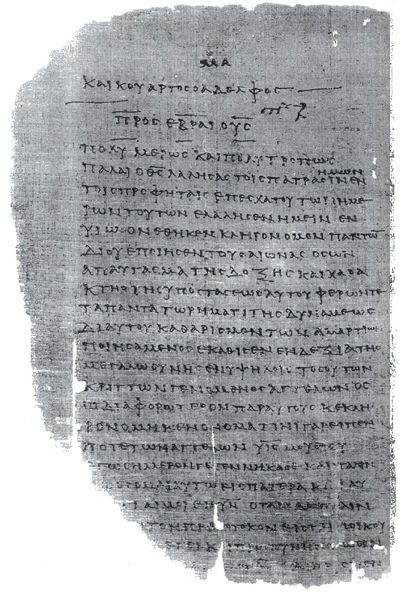 ΜΑ
ΚΑΙ ΚΟΥΑΡΤΟΣ Ο ΑΔΕΛΦΟΣ
ΠΡΟΣ ΕΒΡΑΙΟΥΣ
ΠΟΛΥΜΕΡΩΣ ΚΑΙ ΠΟΛΥΤΡΟΠΩΣ
ΗΜΩΝ
ΠΑΛΑΙ Ο ΘΣ ΛΑΛΗΣΑΣ ΤΟΙΣ ΠΑΤΡΑΣΙΝ ΕΝ
ΤΟΙΣ ΠΡΟΦΗΤΑΙΣ ΕΠ ΕΣΧΑΤΟΥ ΤΩΝ ΗΜΕ
ΡΩΝ ΤΟΥΤΩΝ ΕΛΑΛΗΣΕΝ ΗΜΕΙΝ ΕΝ
ΥΙΩ ΟΝ ΕΘΗΚΕΝ ΚΛΗΡΟΝΟΜΟΝ ΠΑΝΤΩ
ΔΙ ΟΥ ΕΠΟΙΗΣΕΝ ΤΟΥΣ ΑΙΩΝΑΣ ΟΣ ΩΝ
ΑΠΑΥΓΑΣΜΑ ΤΗΣ ΔΟΞΗΣ ΚΑΙ ΧΑΡΑ
ΚΤΗΡ ΤΗΣ ΥΠΟΣΤΑΣΕΩΣ ΑΥΤΟΥ ΦΕΡΩΝ ΤΕ
ΤΑ ΠΑΝΤΑ ΤΩ ΡΗΜΑΤΙ ΤΗΣ ΔΥΝΑΜΕΩΣ
ΔΙ ΑΥΤΟΥ ΚΑΘΑΡΙΣΜΟΝ ΤΩΝ ΑΜΑΡΤΙΩΝ
ΠΟΙΗΣΑΜΕΝΟΣ ΕΚΑΘΙΣΕΝ ΕΝ ΔΕΞΙΑ ΤΗΣ
ΜΕΓΑΛΩΣΥΝΗΣ ΕΝ ΥΨΗΛΟΙΣ ΤΟΣΟΥΤΩΝ
ΚΡΙΤΤΩΝ ΓΕΝΟΜΕΝΟΣ ΑΓΓΕΛΩΝ ΟΣ
ΔΙΑΦΟΡΩΤΕΡΟΝ ΠΑΡ ΑΥΤΟΥΣ ΚΕΚΛΗ
ΡΟΝΟΜΗΚΕΝ ΟΝΟΜΑ ΤΙΝΙ ΓΑΡ ΕΙΠΕΝ
ΠΟΤΕ ΤΩΝ ΑΓΓΕΛΩΝ ΥΙΣ ΜΟΥ ΕΙ ΣΥ
ΕΓΩ ΣΗΜΕΡΟΝ ΓΕΓΕΝΝΗΚΑ ΣΕ ΚΑΙ ΠΑΛΙΝ
ΕΣΟΜΑΙ ΑΥΤΩ ΕΙΣ ΠΑΤΕΡΑ ΚΑΙ ΑΥ
ΕΣΤΑΙ ΜΟΙ ΕΙΣ ΥΝ ΟΤΑΝ ΔΕ ΠΑΛΙΝ
ΤΟΝ ΠΡΩΤΟΤΟΚΟΝ ΕΙΣ ΤΗΝ ΟΙΚΟΥ